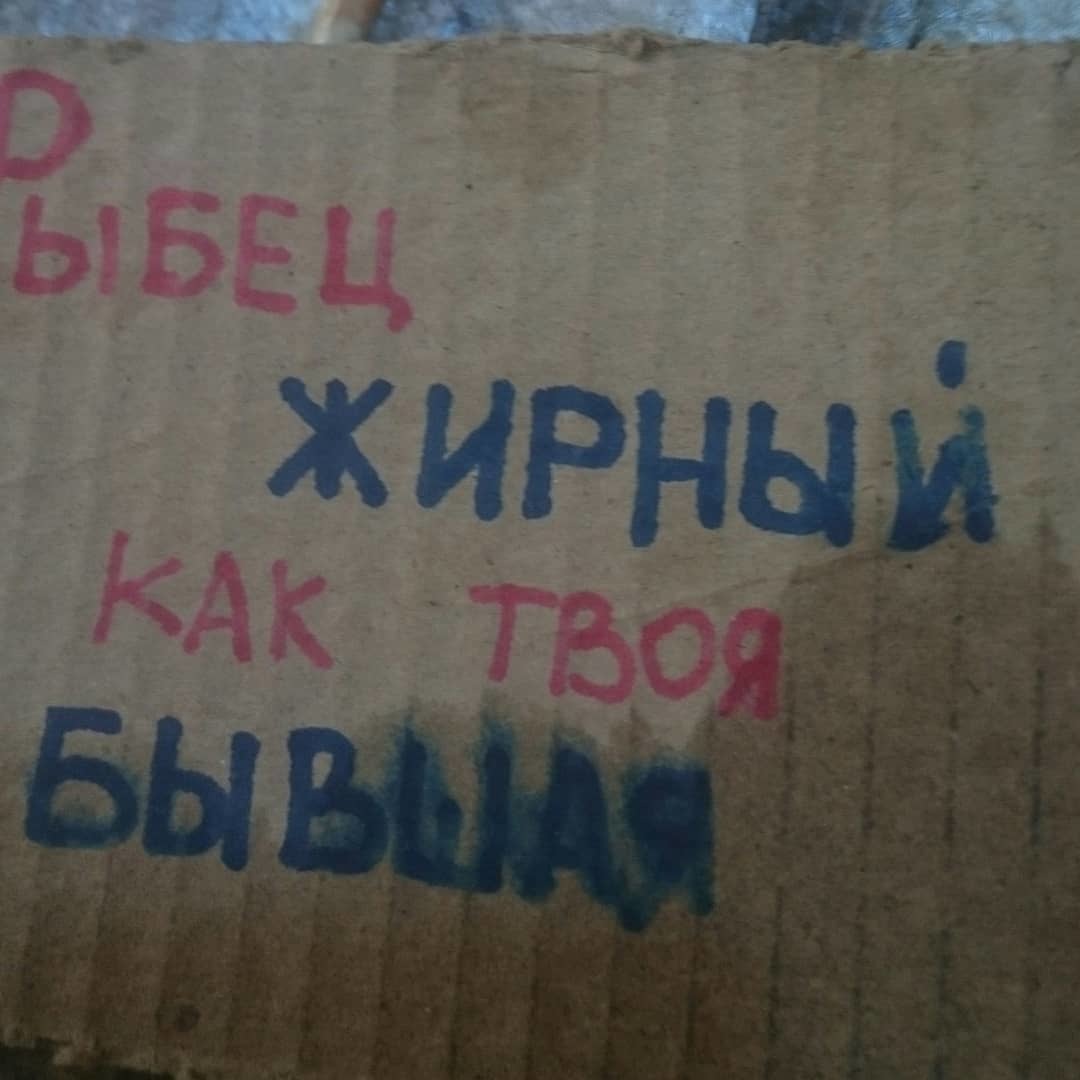 РЫБЕЦ
ЖИРНЫЙ
КАК ТВОЯ
БЫВШАЯ